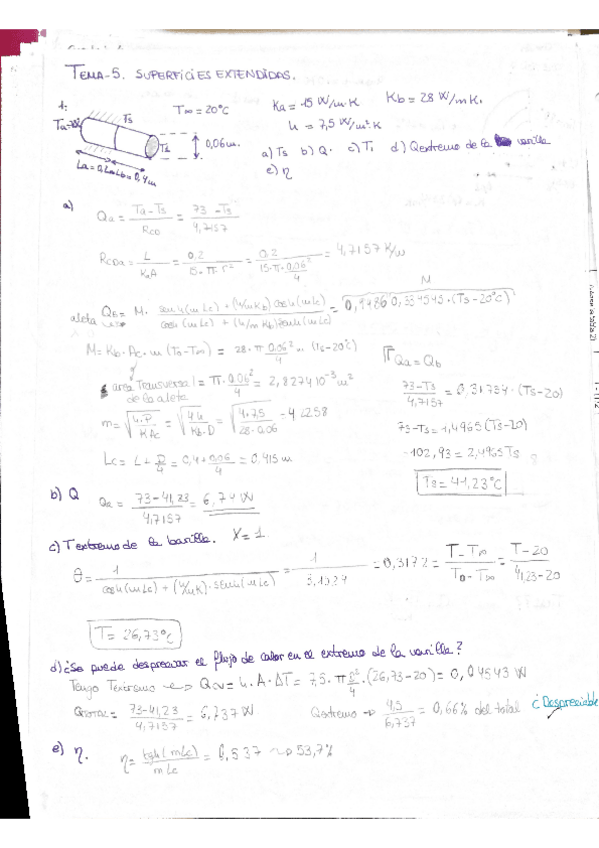 TEMA-5. SUPERFICIES EXTENDIDAS.
1.
T∞ = 20°C
Ka = 15 W/m·K
Kb = 28 W/mK.
h = 7,5 W/m²K
Ts
0,06m.
a) Ts b) Q. c) T1 d) Qextremo de la varilla
e) η
a) Qa = (Ta-Ts)/RCD = (73-Ts)/4,7157
RCDa = L/(KaA) = 0,2/(15·π·r²) = 0,2/(15·π·0,06²/4) = 4,7157 K/W
aleta QB = M · (senh(mLc) + (h/mKb) cosh(mLc))/(cosh(mLc) + (h/mKb) senh(mLc)) =
M = Kb·Ac·m (Ts-T∞) = 28·π 0,06²/4 · m (Ts-20°C)
área transversal = π·0,06²/4 = 2,8274·10⁻³ m²
de la aleta
m = √(h·P/(K·Ac)) = √(4h/(Kb·D)) = √(4·7,5/(28·0,06)) = 4,2258
Lc = L + D/4 = 0,4 + 0,06/4 = 0,415 m
Qa = Qb
(73-Ts)/4,7157 = 0,31734·(Ts-20)
73-Ts = 1,4965 (Ts-20)
102,93 = 2,4965 Ts
Ts = 41,23°C
b) Q Qa = (73-41,23)/4,7157 = 6,74 W
c) T extremo de la barilla. X = 1
θ = 1/(cosh(mLc) + (h/mK)·senh(mLc)) = 1/3,1527 = 0,3172 = (T-T∞)/(To-T∞) = (T-20)/(41,23-20)
T = 26,73°C
d) ¿Se puede despreciar el flujo de calor en el extremo de la varilla?
Tengo Textremo → Qcv = h·A·ΔT = (26,73-20) = 0,04543 W
QTOTAL = (73-41,23)/4,7157 = 6,737 W
Qextremo → 4,5/6,737 = 0,66% del total
¿Despreciable
e) η. η = tgh(mLc)/mLc = 0,537 → 53,7%